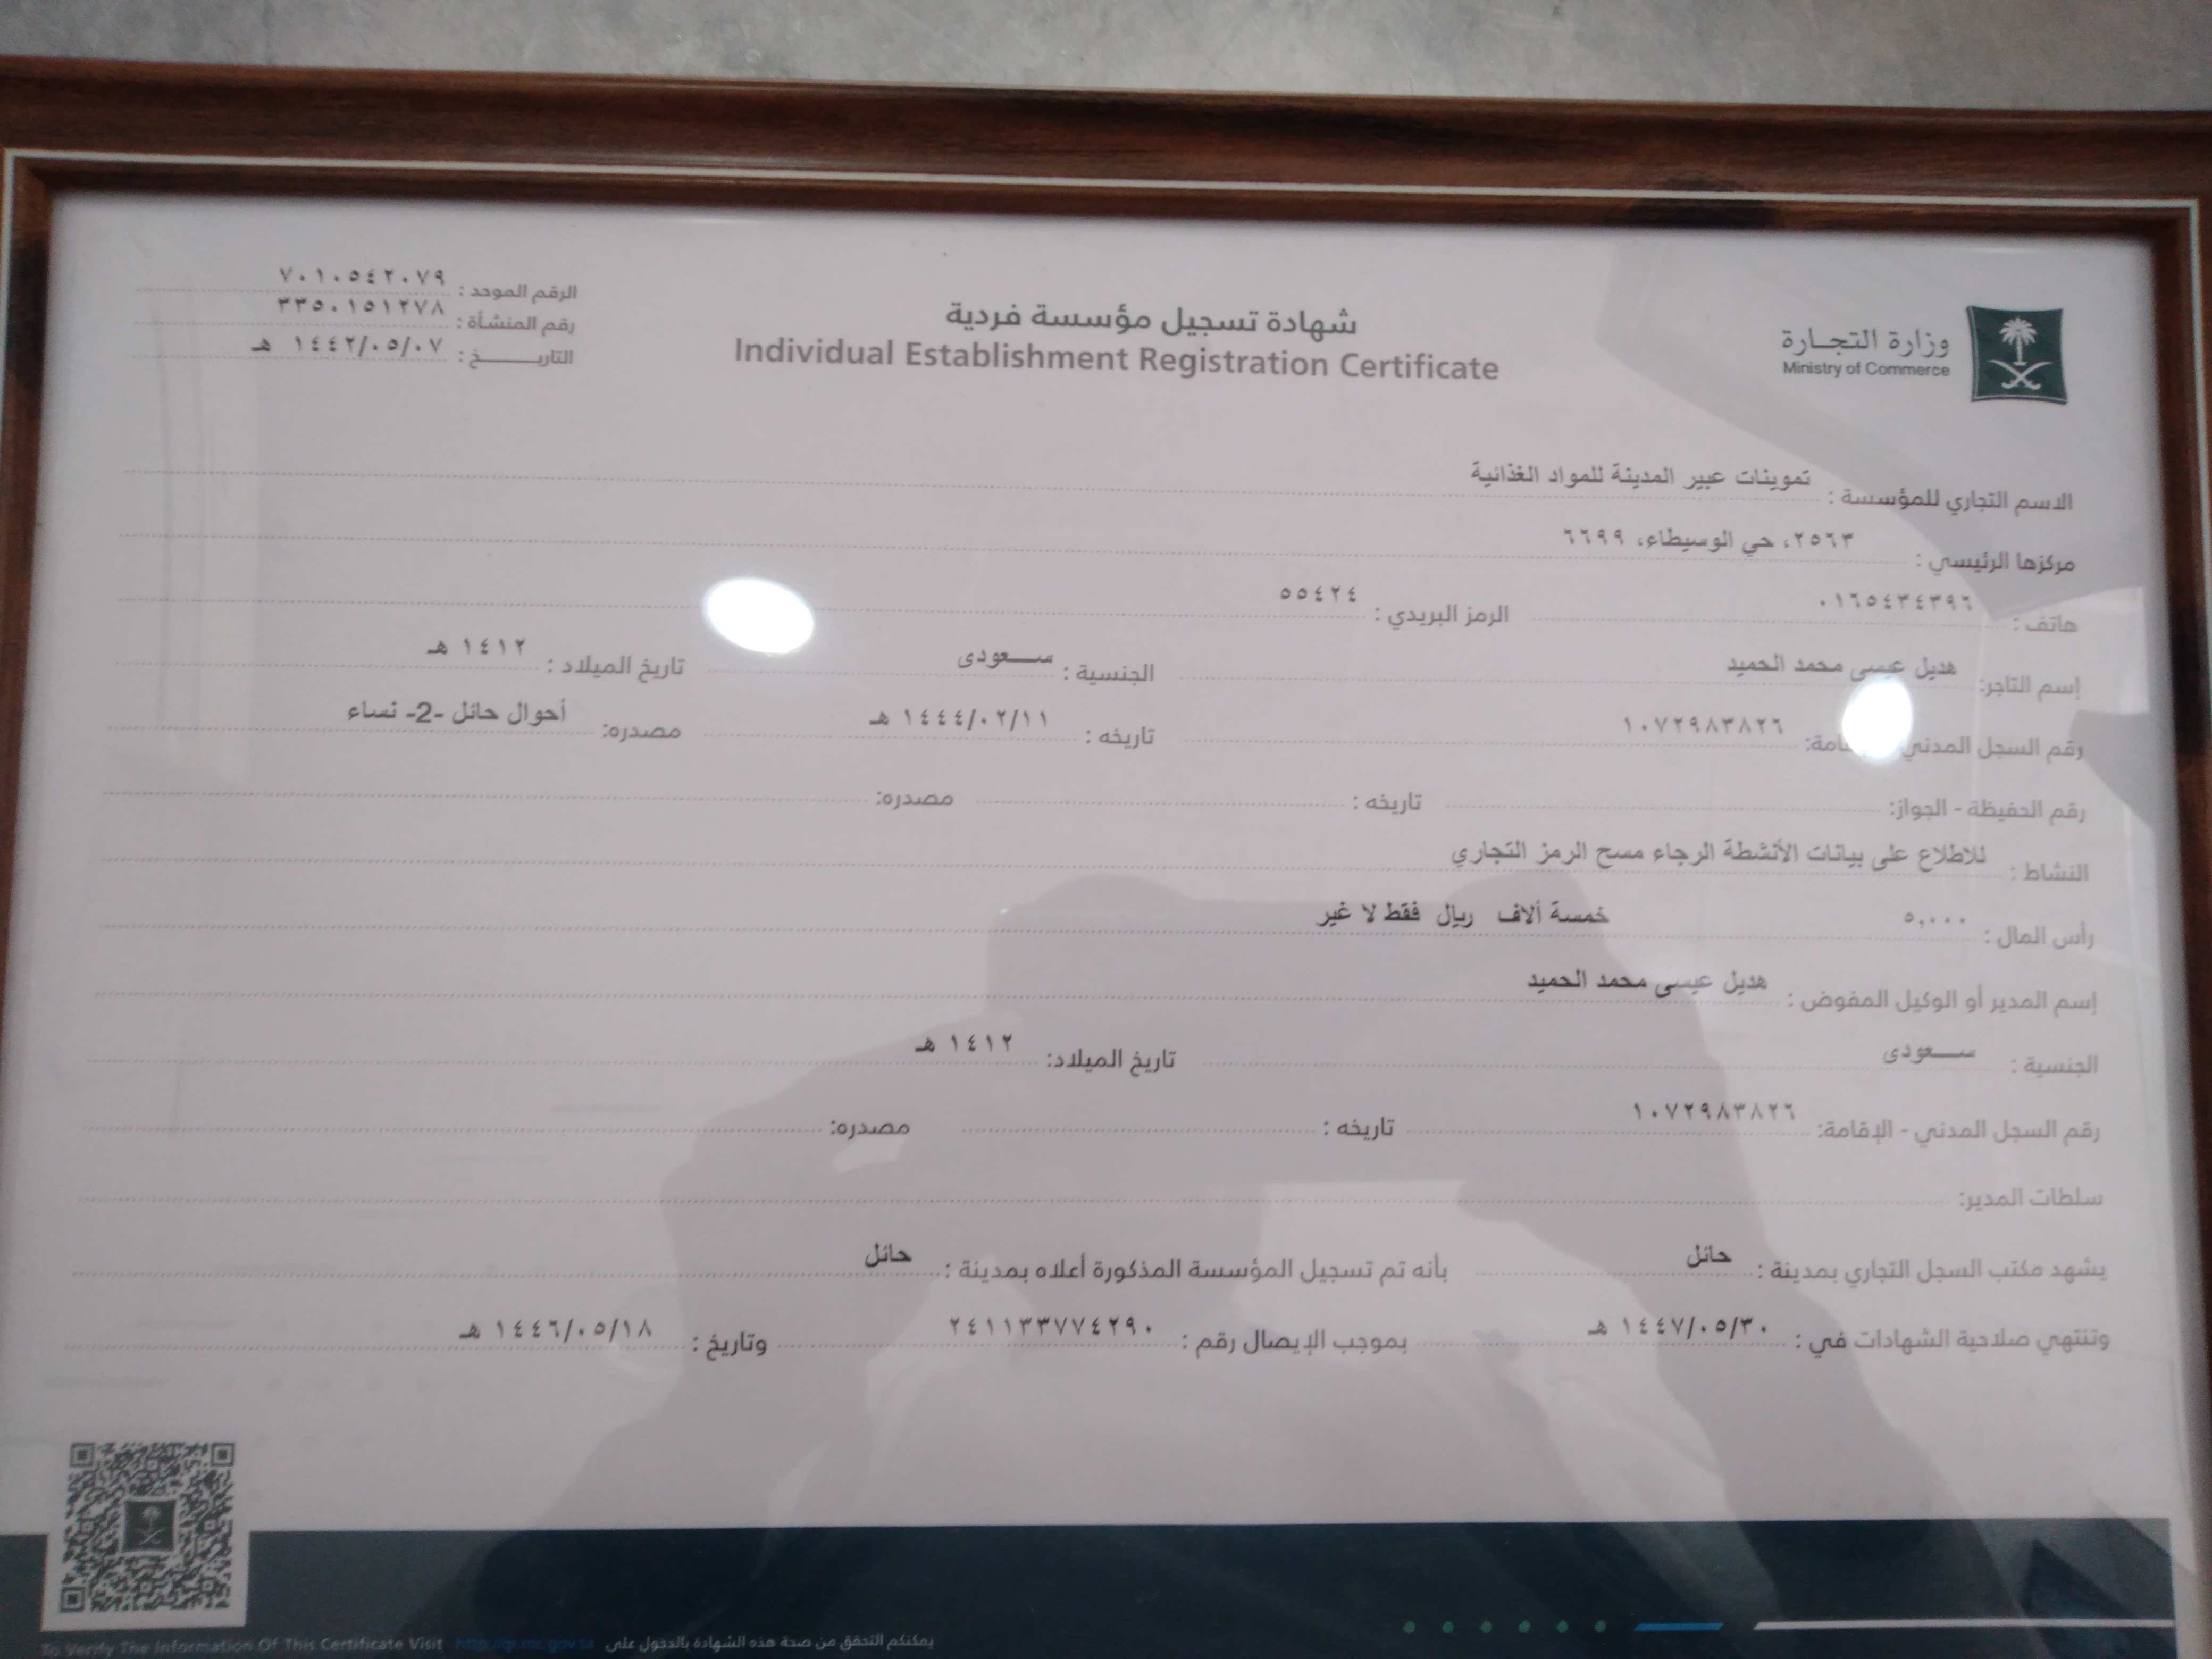 الرقم الموحد : ٧٠١٠٥٤٢٠٧٩
رقم المنشأة : ٣٣٥٠١٥١٢٧٨
التاريـــــخ : ١٤٤٢/٠٥/٠٧ هـ
شهادة تسجيل مؤسسة فردية
Individual Establishment Registration Certificate
وزارة التجـارة
Ministry of Commerce
الاسم التجاري للمؤسسة : تموينات عبير المدينة للمواد الغذائية
مركزها الرئيسي : ٢٥٦٣، حي الوسيطاء، ٦٦٩٩
هاتف : ٠١٦٥٤٣٤٣٩٦ الرمز البريدي : ٥٥٤٢٤
إسم التاجر: هديل عيسى محمد الحميد الجنسية : ســـعودى تاريخ الميلاد : ١٤١٢ هـ
رقم السجل المدني ١٠٧٢٩٨٣٨٢٦ تاريخه : ١٤٤٤/٠٢/١١ هـ مصدره: أحوال حائل -2- نساء
رقم الحفيظة - الجواز: تاريخه : مصدره:
النشاط : للاطلاع على بيانات الأنشطة الرجاء مسح الرمز التجاري
رأس المال : ٥,٠٠٠ خمسة ألاف ريال فقط لا غير
إسم المدير أو الوكيل المفوض : هديل عيسى محمد الحميد
الجنسية : ســـعودى تاريخ الميلاد: ١٤١٢ هـ
رقم السجل المدني - الإقامة: ١٠٧٢٩٨٣٨٢٦ تاريخه : مصدره:
سلطات المدير:
يشهد مكتب السجل التجاري بمدينة : حائل بأنه تم تسجيل المؤسسة المذكورة أعلاه بمدينة : حائل
وتنتهي صلاحية الشهادات في : ١٤٤٧/٠٥/٣٠ هـ بموجب الإيصال رقم : ٢٤١١٣٣٧٧٤٢٩٠ وتاريخ : ١٤٤٦/٠٥/١٨ هـ
يمكنكم التحقق من صحة هذه الشهادة بالدخول على http://qr.mc.gov.sa To Verify The Information Of This Certificate Visit